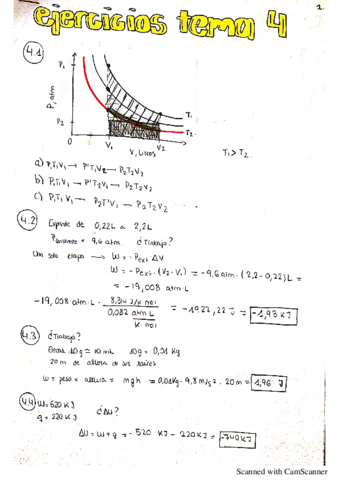 ejercicios tema 4
1.
4.1
P, atm
P₁
P₂
V₁
V₂
V, Litros
T₁
T₂
T₁ > T₂
a) P₁T₁V₁ → P'T₁V₂ → P₂T₂V₂
b) P₁T₁V₁ → P'T₂V₁ → P₂T₂V₂
c) P₁T₁V₁ → P₂T'V₁ → P₂T₂V₂
4.2 Expande de 0,22L a 2,2L
= 9,6 atm ¿Trabajo?
Una sola etapa → W = -Pext·ΔV
W = -Pext·(V₂-V₁) = -9,6 atm·(2,2-0,22)L =
= -19,008 atm·L
-19,008 atm·L · 8,314 J/K mol / 0,082 atm L / K mol = -1927,22 J = -1,93 KJ
4.3 ¿Trabajo?
10g ≃ 10 mL 10g = 0,01 Kg
20 m de altura de sus
W = peso x altura = mgh = 0,01Kg · 9,8 m/s² · 20m = 1,96 J
4.4 W = 520 KJ ¿ΔU?
q = 220 KJ
ΔU = W + q = -520 KJ - 220KJ = -740KJ
Scanned with CamScanner